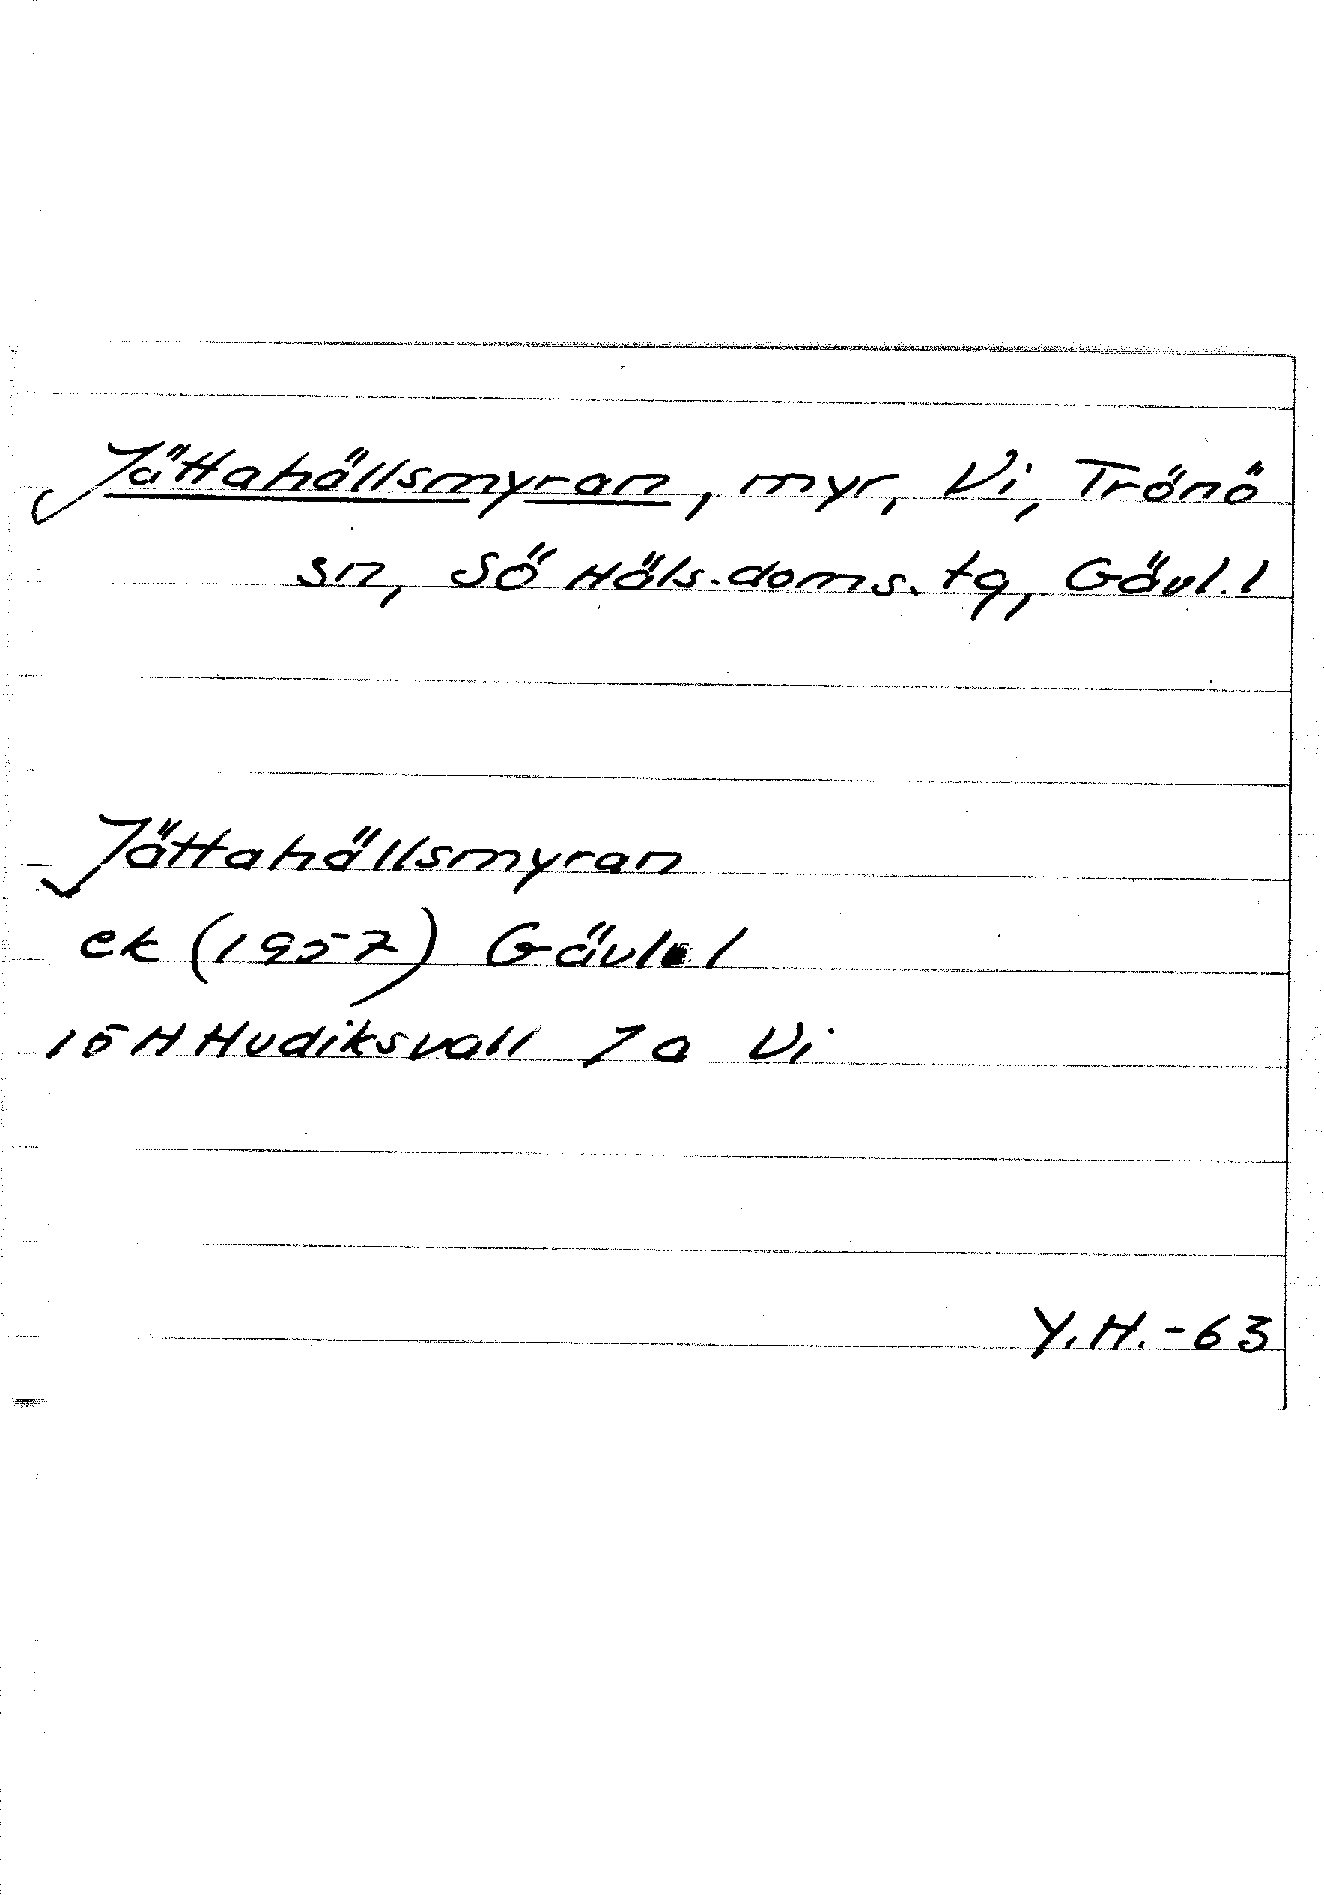 Jättahällsmyran, myr, Vi, Trönö
sn, Sö Häls. doms. tg, Gävl. l
Jättahällsmyran
ek (1957) Gävl. l
15H Hudiksvall 7a Vi
Y.H.-63